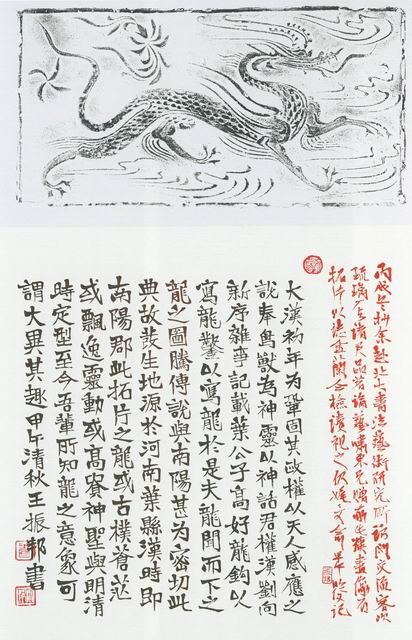 丙戌冬抄余赴北京書法藝術研究所訪問交流
琉璃廠諸品茗論藝嘯東兄贈所集畫像有
拓片以志金蘭念檢讀視之
大漢初年為鞏固其政權以天人感應之
說奉鳥獸為神靈以神話君權漢劉向
新序雜事記載葉公子高好龍鉤以
寫龍鑿以寫龍於是夫龍聞而下之
龍之圖騰傳說與南陽甚為密切此
典故發生地源於河南葉縣漢時即
南陽郡此拓片之龍或古樸蒼茫
或飄逸靈動或高賓神聖與明清
時定型至今吾輩所知龍之意象可
謂大異其趣甲午清秋王振邦書